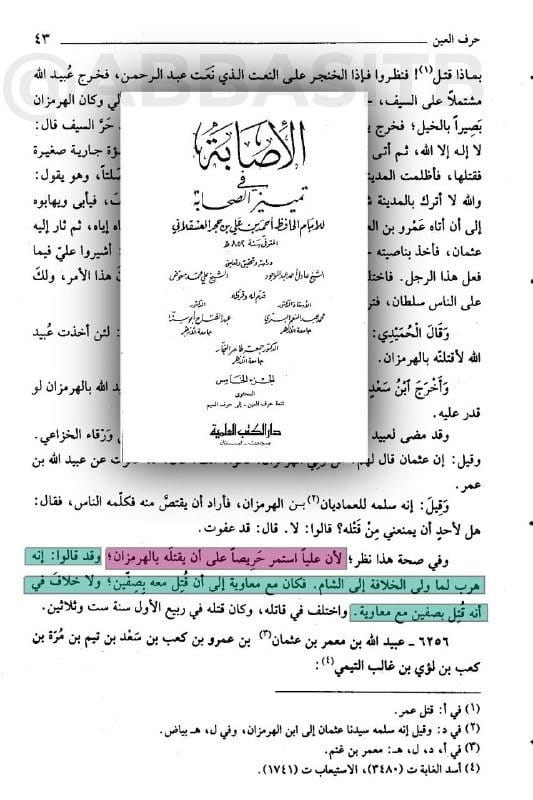 حرف العين
٤٣
بماذا قتل(١)! فنظروا فإذا الخنجر على النعت الذي نَعَت عبد الرحمن، فخرج عُبيد الله
مشتملاً على السيف،
لي وكان الهرمزان
بَصِيراً بالخيل؛ فخرج
حَرَّ السيف قال:
لا إله إلا الله، ثم أتى
جارية صغيرة
فقتلها، فأظلمت المدينة
وهو يقول:
والله لا أترك بالمدينة
فيأبى ويهابوه
إلى أن أتاه عَمْرو بن
إياه، ثم ثار إليه
عثمان، فأخذ بناصيته
أشيروا عليّ فيما
فعل هذا الرجل.
هذا الأمر، ولكَ
على الناس سلطان،
وَقَالَ الْحُمَيْدِي:
لئن أخذت عُبيد
الله لأقتلنّه بالهرمزان.
وَأَخْرَجَ ٱبْنُ سَعْدٍ
الله بالهرمزان لو
قدر عليه.
وقد مضى لعبيد
وَرْقاء الخزاعي.
وقيل: إن عثمان قال لهم
عن عبيد الله بن
عمر.
وَقِيلَ: إنه سلمه للعماديان(٢)بـن الهرمزان، فأراد أن يقتصَّ منه فكلّمه الناس، فقال:
هل لأحدٍ أن يمنعني مِنْ قَتْله؟ قالوا: لا. قال: قد عفوت.
وفي صحة هذا نظر؛ لأن علياً استمر حَرِيصاً على أن يقتلَه بالهرمزان؛ وقد قالوا: إنه
هرب لما ولى الخلافة إلى الشام. فكان مع معاوية إلى أن قُتِل معه بِصِفّين؛ ولا خلافَ في
أنه قُتِل بصفين مع معاوية. واختلف في قاتله، وكان قتله في ربيع الأول سنة ست وثلاثين.
٦٢٥٦ ـ عبيد الله بن معمر بن عثمان(٣) بن عمرو بن كعب بن سَعْد بن تيم بن مُرَة بن
كعب بن لؤي بن غالب التيمي(٤):
(١) في أ: قتل عمر.
(٢) في د: وقيل إنه سلمه سيدنا عثمان إلى ابن الهرمزان، وفي ل، هـ بياض.
(٣) في أ، د، ل، هـ: معمر بن غنم.
(٤) أسد الغابة ت (٣٤٨٠)، الاستيعاب ت (١٧٤١).
الإصابة
في
تمييز الصحابة
للإمام الحافظ أحمد بن علي بن حجر العسقلاني
المتوفى سنة ٨٥٢ هـ
دراسة وتحقيق وتعليق
الشيخ عادل أحمد عبد الموجود
الشيخ علي محمد معوض
قدم له وقرظه
الأستاذ الدكتور
محمد عبد المنعم البري
جامعة الأزهر
الدكتور
عبد الفتاح أبو سنة
جامعة الأزهر
الدكتور جمعة طاهر النجار
جامعة الأزهر
الجزء الخامس
المحتوى
تتمة حرف العين - إلى حرف الميم
دار الكتب العلمية
بيروت - لبنان